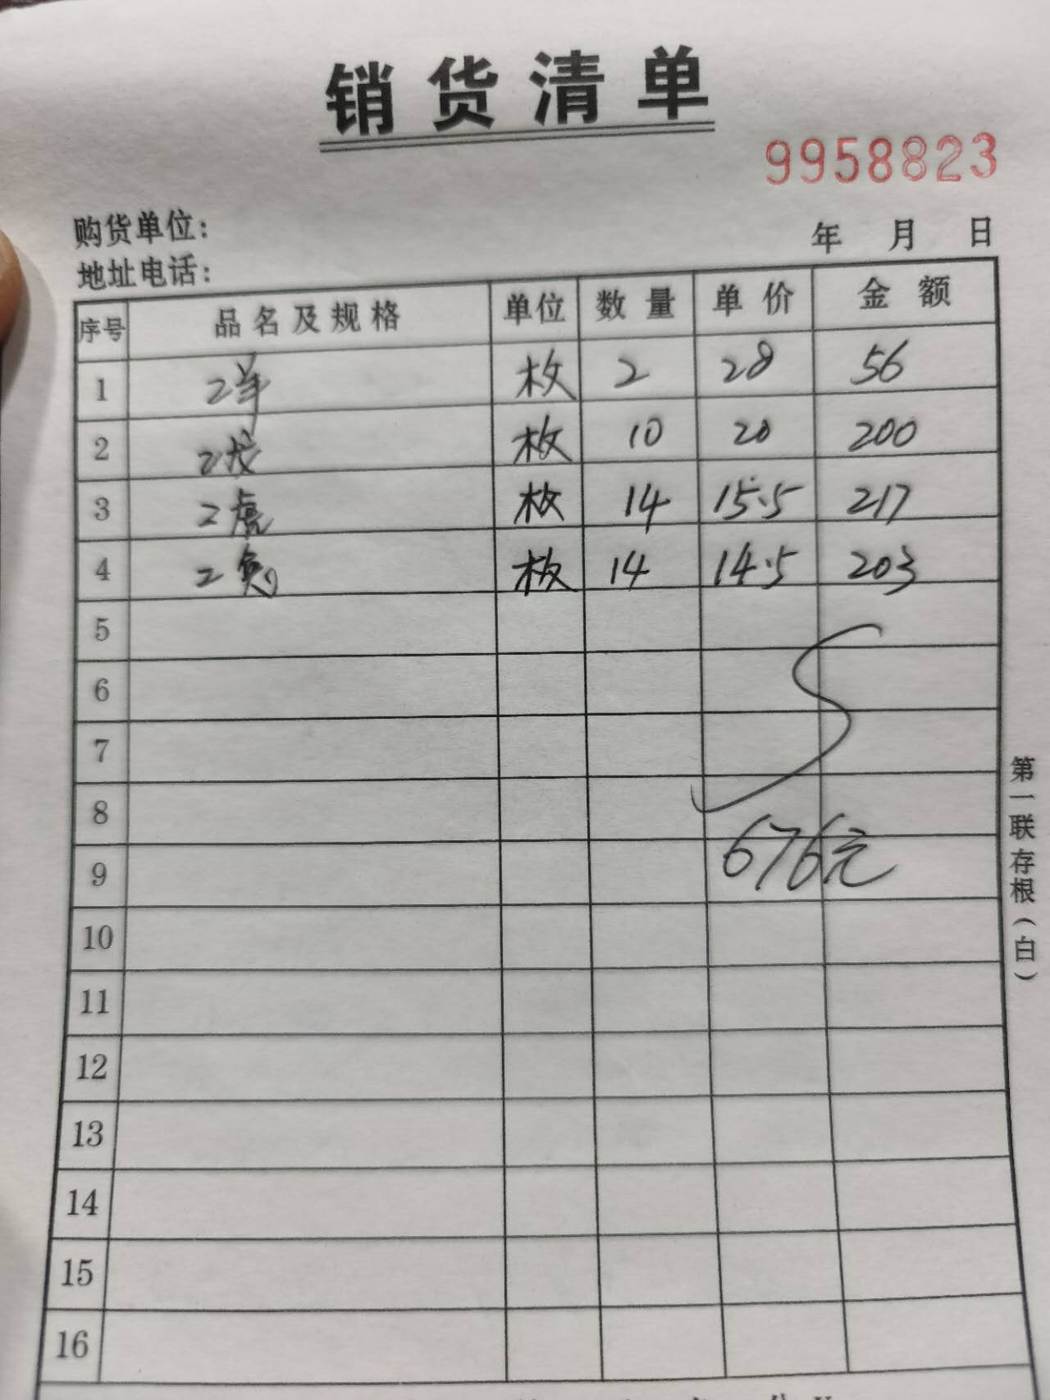 销货清单
9958823
购货单位： 年 月 日
地址电话：
序号 品名及规格 单位 数量 单价 金额
1 2羊 枚 2 28 56
2 2龙 枚 10 20 200
3 2虎 枚 14 15.5 217
4 2兔 枚 14 14.5 203
5
6
7
8
9 676元
10
11
12
13
14
15
16
第一联存根（白）